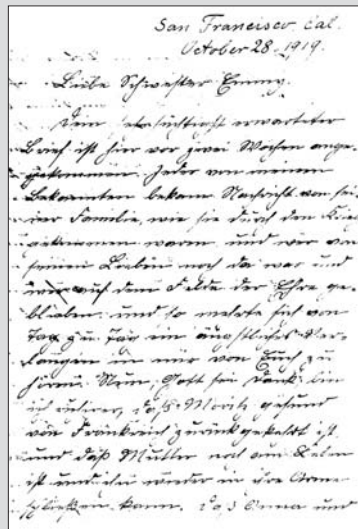 San Francisco. Cal.
October 28. 1919.
Liebe Schwester Emmy.
Dein sehnsüchtigst erwarteter
Brief ist hier vor zwei Wochen ange-
gekommen. Jeder von meinen
Bekannten bekam Nachricht von sei-
ner Familie, wie sie durch den
gekommen waren und wer von
seinen Lieben noch da war und
wer auf dem Felde der Ehre ge-
blieben. und so mehrte sich von
Tag zu Tag ein ängstliches Ver-
langen in mir von Euch zu
hören. Nun, Gott sei Dank bin
ich daß Moritz gesund
von Frankreich zurückgekehrt ist
und daß Mutter noch am Leben
ist und ihn wieder in ihre Arme
schließen kann. Daß Anna und